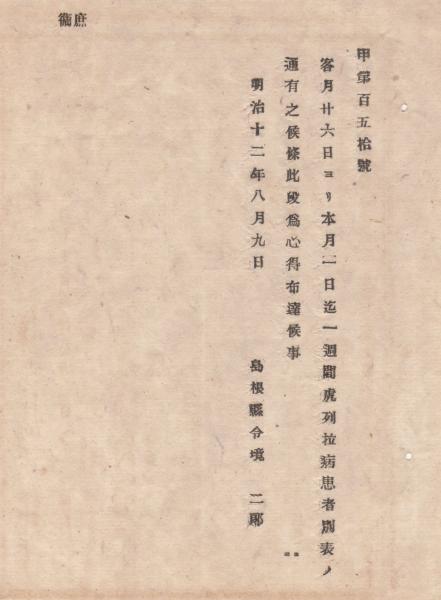 庶衞
甲第百五拾號
客月廿六日ヨリ本月一日迄一週間虎列拉病患者別表ノ
通有之候條此段爲心得布達候事
明治十二年八月九日
島根縣令境二郎